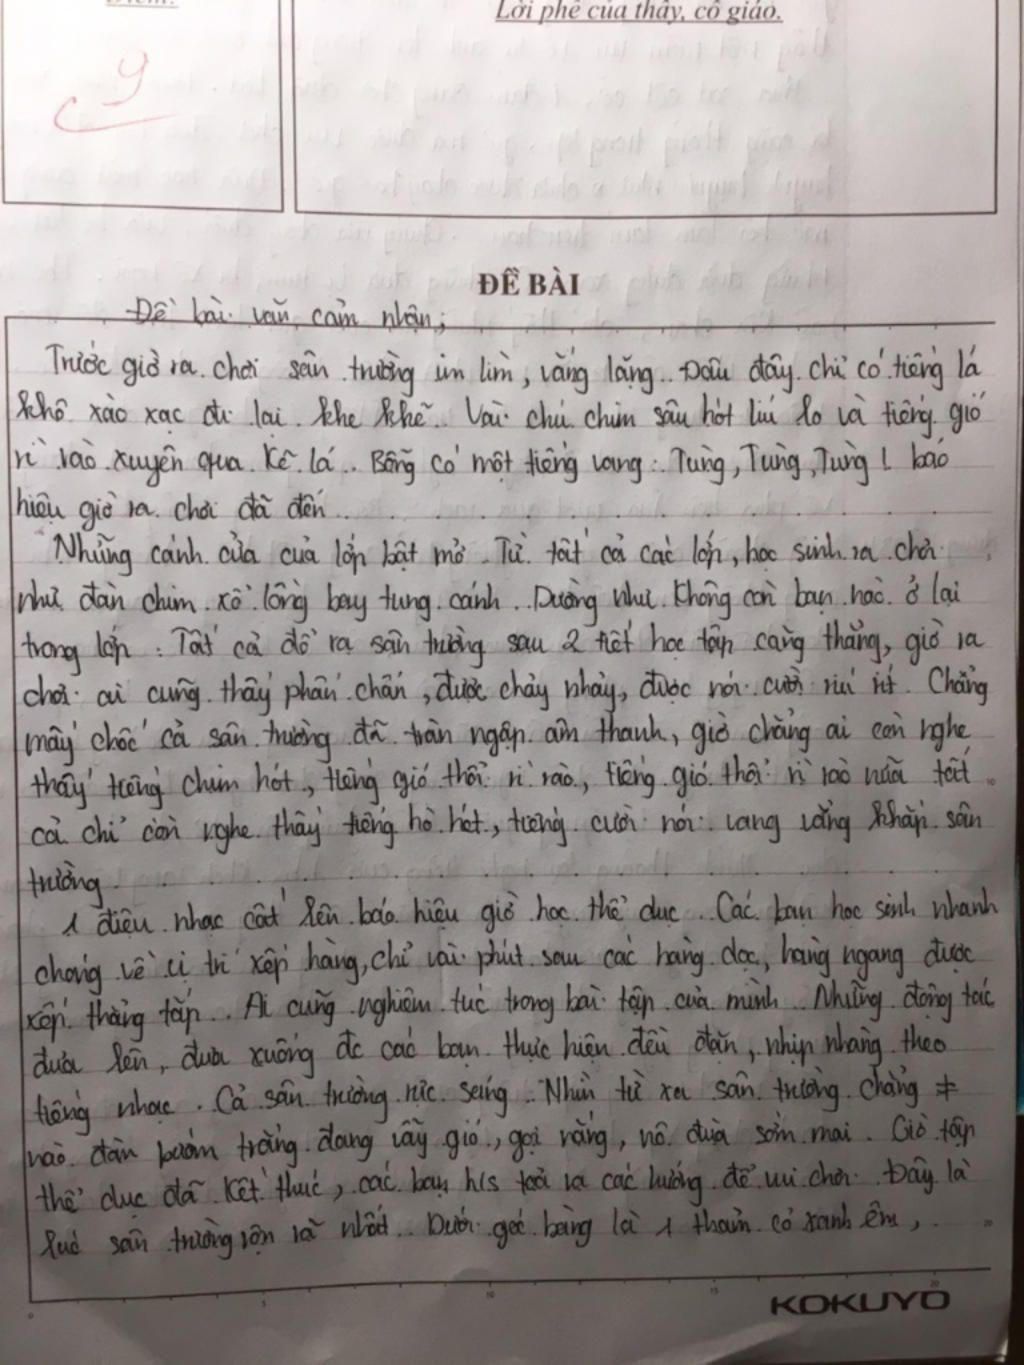 Điểm:
Lời phê của thầy, cô giáo.
9
ĐỀ BÀI
Đề bài văn cảm nhận;
Trước giờ ra chơi sân trường im lìm, vắng lặng. Đâu đây chỉ có tiếng lá
khô xào xạc đi lại khe khẽ. Vài chú chim sâu hót líu lo và tiếng gió
rì rào xuyên qua kẽ lá.. Bỗng có một tiếng vang: Tùng, Tùng, Tùng! báo
hiệu giờ ra chơi đã đến.
Những cánh cửa của lớp bật mở. Từ tất cả các lớp, học sinh ra chơi
như đàn chim xổ lồng bay tung cánh. Dường như không còn bạn nào ở lại
trong lớp. Tất cả đổ ra sân trường sau 2 tiết học tập căng thẳng, giờ ra
chơi ai cũng thấy phấn chấn, được chạy nhảy, được nói cười ríu rít. Chẳng
mấy chốc cả sân trường đã tràn ngập âm thanh, giờ chẳng ai còn nghe
thấy tiếng chim hót, tiếng gió thổi rì rào, tiếng gió thổi rì rào nữa tất
cả chỉ còn nghe thấy tiếng hò hét, tiếng cười nói vang vẳng khắp sân
trường.
1 điệu nhạc cất lên báo hiệu giờ học thể dục. Các bạn học sinh nhanh
chóng về vị trí xếp hàng, chỉ vài phút sau các hàng dọc, hàng ngang được
xếp thẳng tắp. Ai cũng nghiêm túc trong bài tập của mình. Những động tác
đưa lên, đưa xuống đc các bạn thực hiện đều đặn, nhịp nhàng theo
tiếng nhạc. Cả sân trường rực sáng. Nhìn từ xa sân trường chẳng ≠
nào đàn bướm trắng đang vẫy gió, gọi nắng, nô đùa sớm mai. Giờ tập
thể dục đã kết thúc, các bạn h/s toả ra các hướng để vui chơi. Đây là
lúc sân trường rộn rã nhất. Dưới gốc bàng là 1 thảm cỏ xanh êm,
KOKUYO